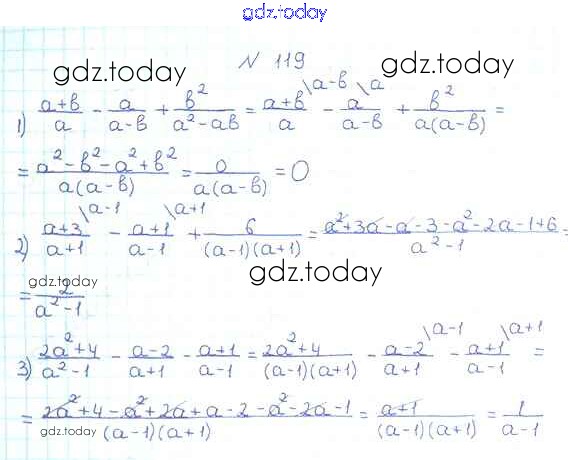 gdz.today
N 119
gdz.today gdz.today
1) (a+b)/a - a/(a-b) + b²/(a²-ab) = (a+b)/a \a-b - a/(a-b) \a + b²/(a(a-b)) =
= (a²-b²-a²+b²)/(a(a-b)) = 0/(a(a-b)) = 0
2) (a+3)/(a+1) \a-1 - (a+1)/(a-1) \a+1 + 6/((a-1)(a+1)) = (a²+3a-a-3-a²-2a-1+6)/(a²-1) =
gdz.today gdz.today
= 2/(a²-1)
3) (2a²+4)/(a²-1) - (a-2)/(a+1) - (a+1)/(a-1) = (2a²+4)/((a-1)(a+1)) - (a-2)/(a+1) \a-1 - (a+1)/(a-1) \a+1 =
= (2a²+4-a²+2a+a-2-a²-2a-1)/((a-1)(a+1)) = (a+1)/((a-1)(a+1)) = 1/(a-1)
gdz.today